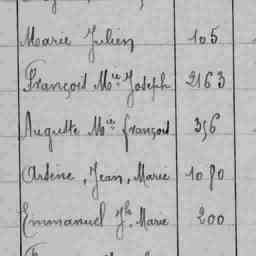 Marie Julien 105
François Mie Joseph 2163
Auguste Mie françois 356
Arsène, Jean, Marie 1080
Emmanuel Jh Marie 200